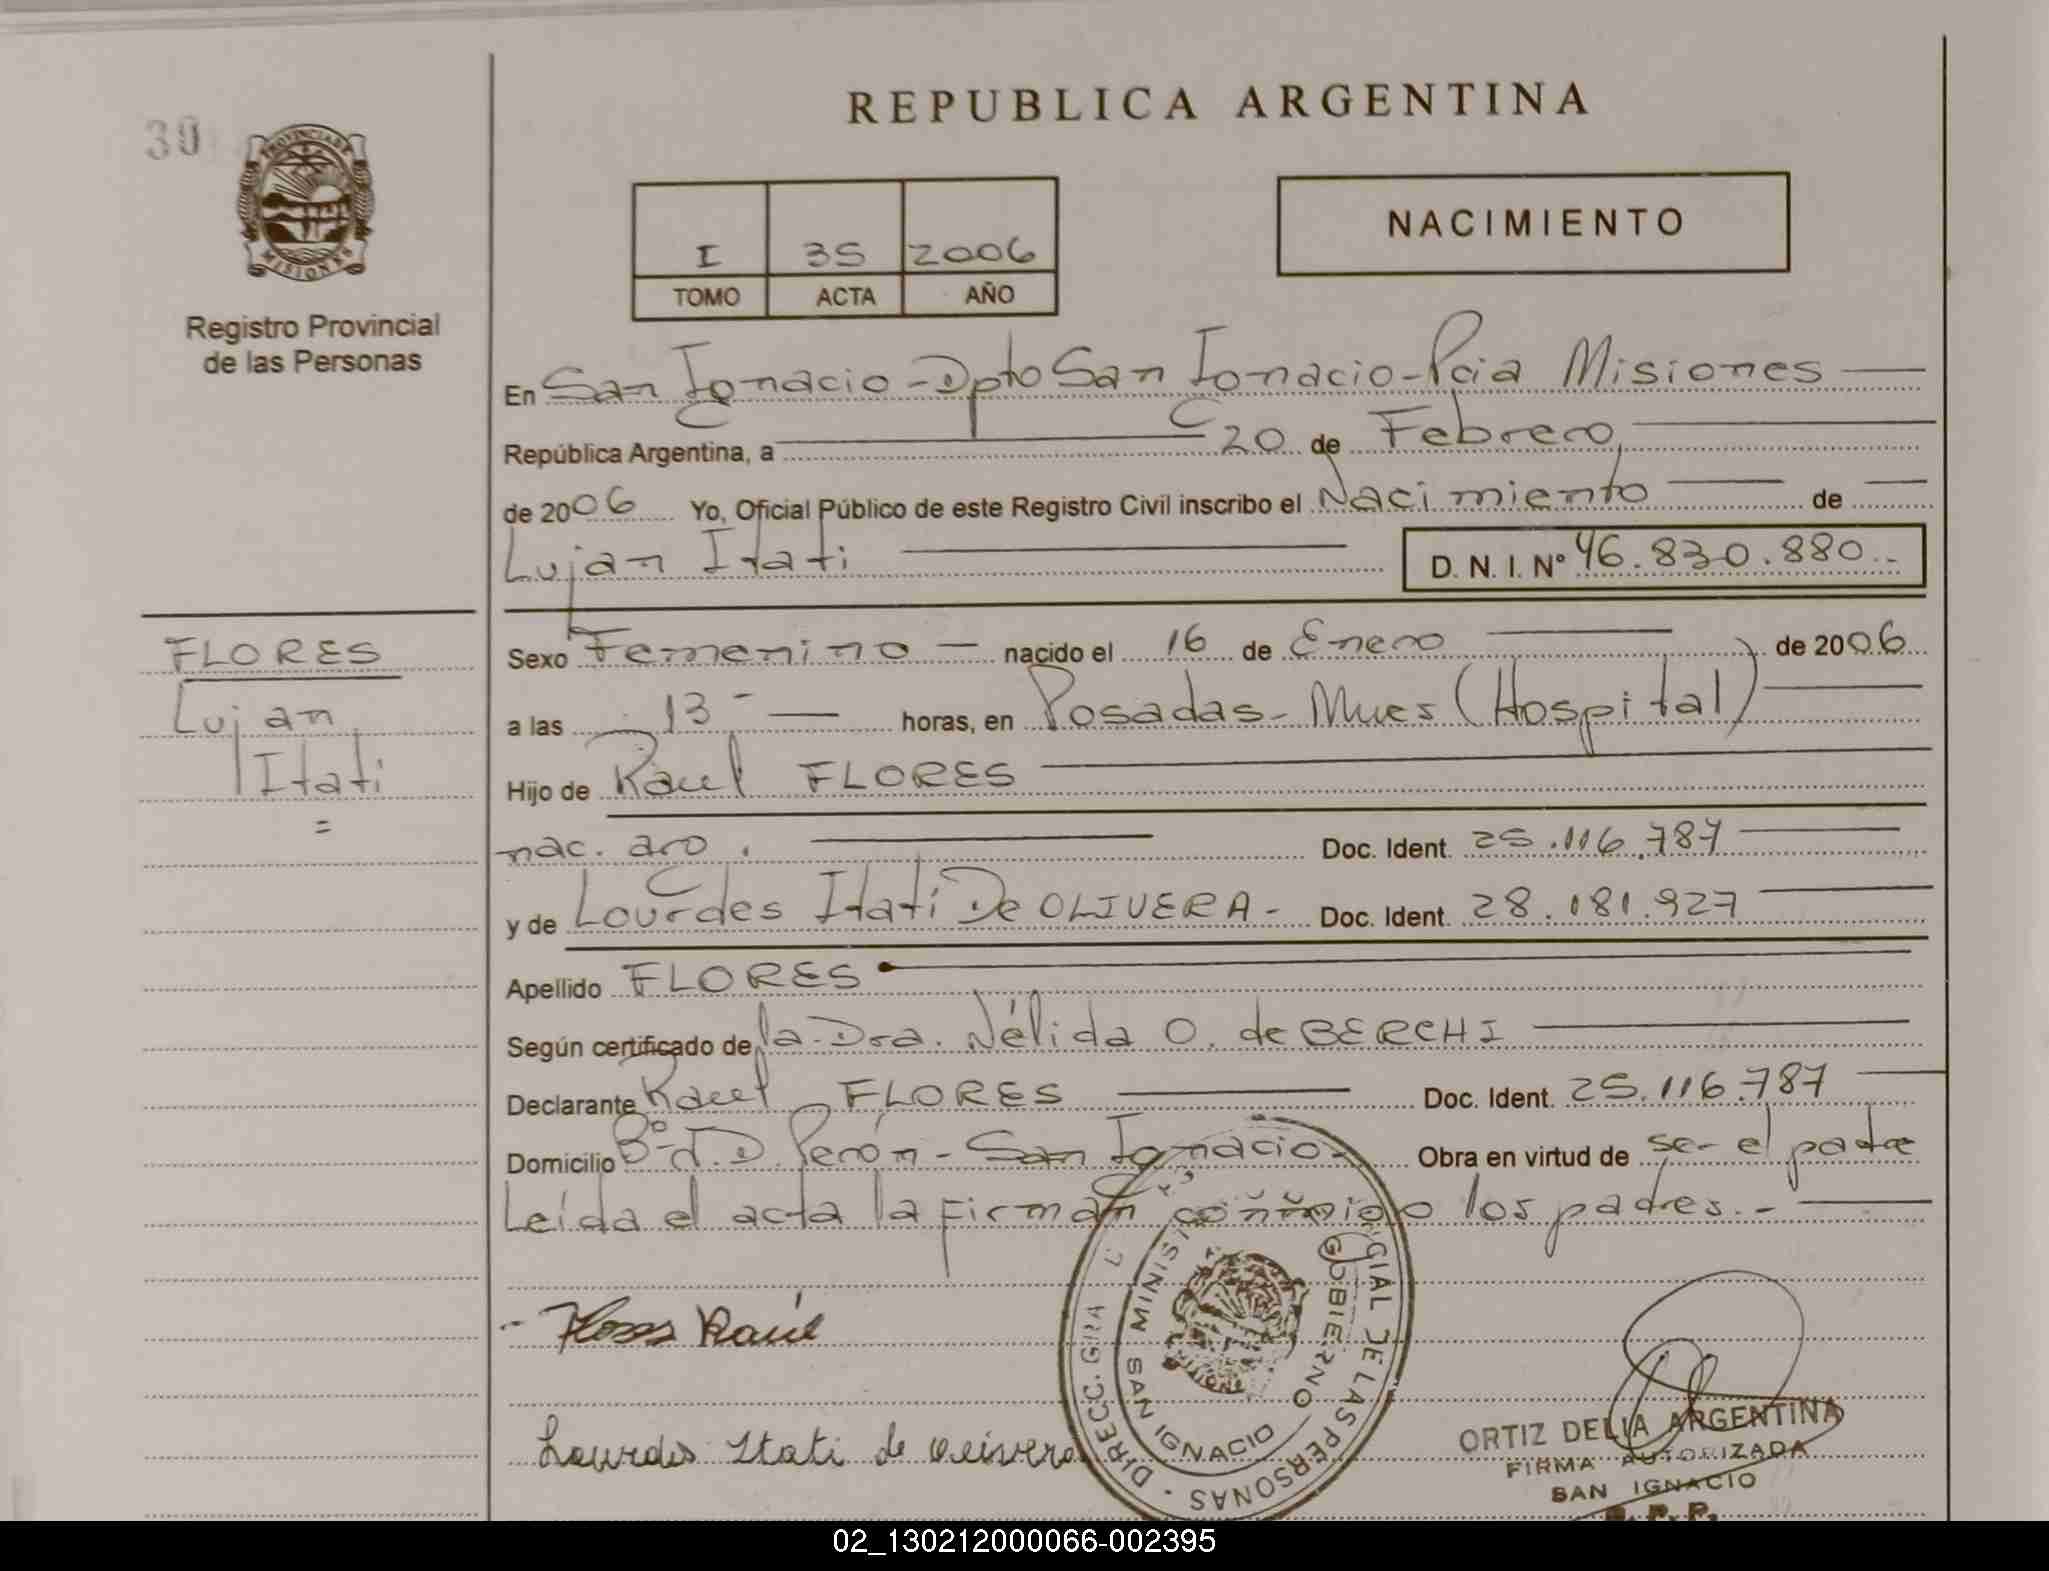 REPUBLICA ARGENTINA
30
PROVINCIA DE MISIONES
Registro Provincial
de las Personas
I 35 2006
TOMO ACTA AÑO
NACIMIENTO
En San Ignacio - Dpto San Ignacio - Pcia Misiones
República Argentina, a 20 de Febrero
de 2006 Yo, Oficial Público de este Registro Civil inscribo el Nacimiento de
Lujan Itati D. N. I. Nº 46.830.880.-
FLORES
Lujan
Itati
Sexo Femenino - nacido el 16 de Enero de 2006
a las 13 - horas, en Posadas - Mnes (Hospital)
Hijo de Raul FLORES
nac. arg. Doc. Ident. 25.116.787
y de Lourdes Itati De OLIVERA - Doc. Ident. 28.181.927
Apellido FLORES
Según certificado de la Dra. Nélida O. de BERCHI
Declarante Raul FLORES Doc. Ident. 25.116.787
Domicilio Bº J.D. Perón - San Ignacio - Obra en virtud de ser el padre
Leída el acta la firman conmigo los padres.-
Flores Raúl
Lourdes Itati de Olivera
DIRECC. GRAL DE LAS PERSONAS
MINIST GOBIERNO
SAN IGNACIO
ORTIZ DELIA ARGENTINA
FIRMA AUTORIZADA
SAN IGNACIO
R. P. P.
02_130212000066-002395